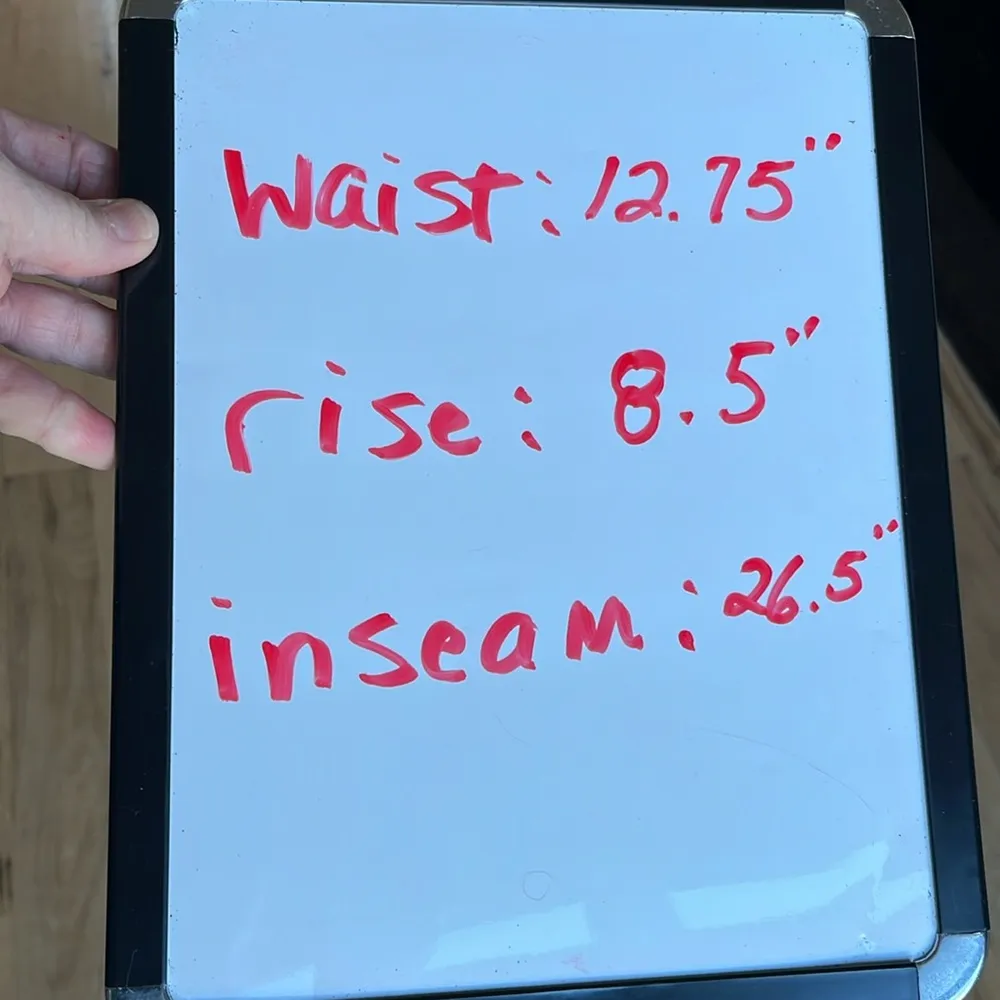 Waist: 12.75"
rise: 8.5"
inseam: 26.5"